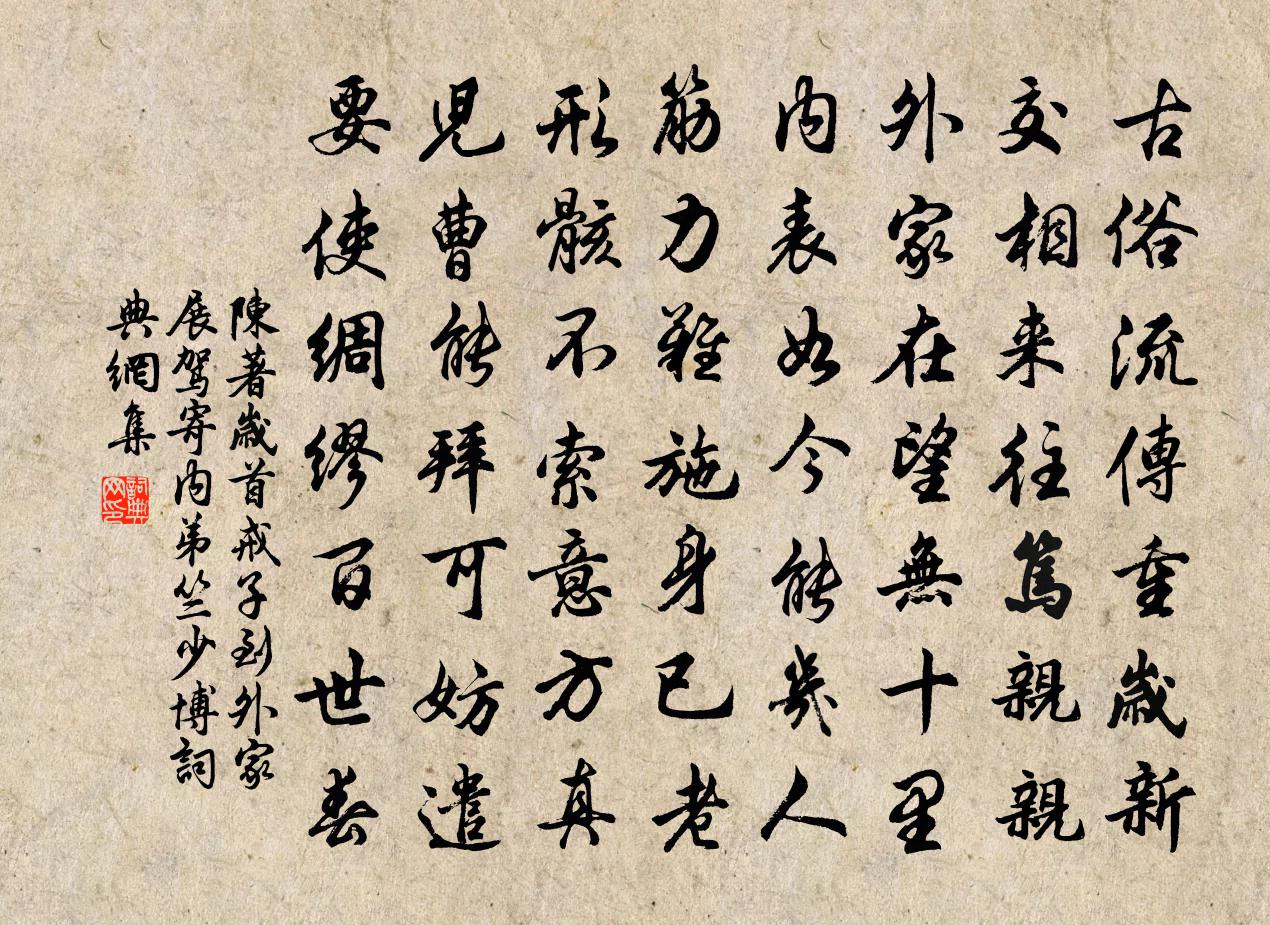 古俗流傳重歲新
交相来往篤親親
外家在望無十里
内表如今能幾人
筋力難施身已老
形骸不索意方真
児曹能拜可妨遣
要使綢繆百世春
陳著歲首戒子到外家
展駕寄内弟竺少博詞
典網集
詞典
网印